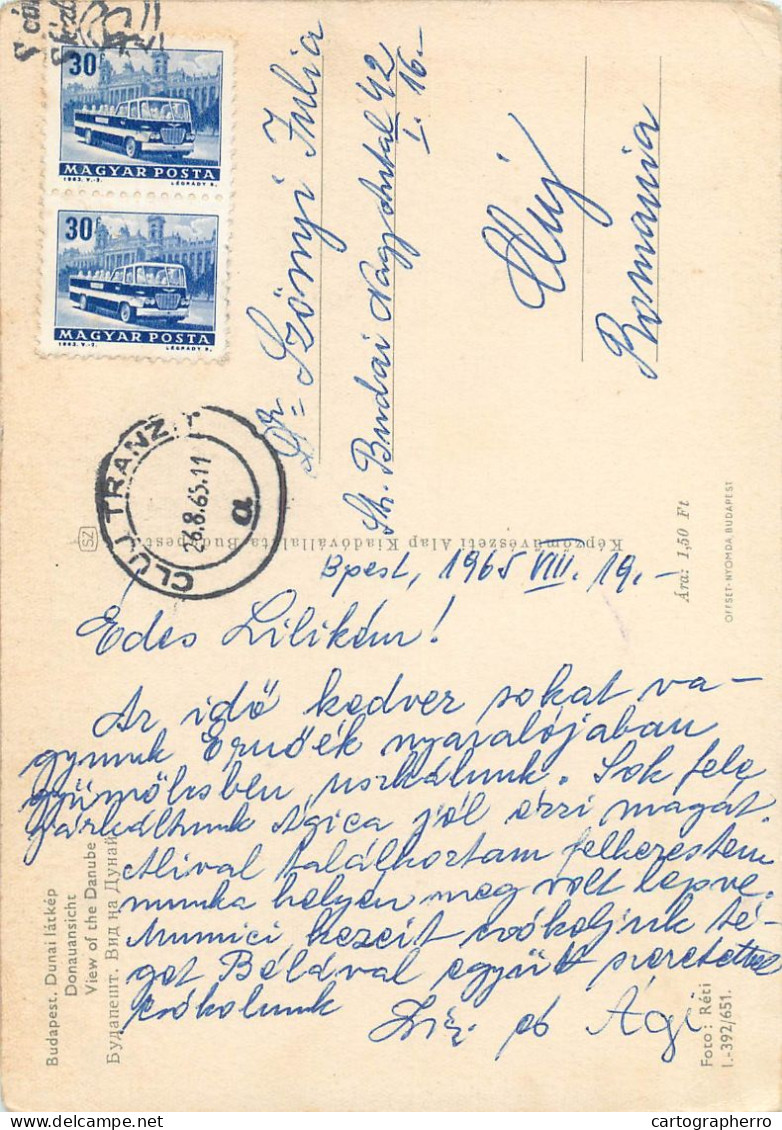 30f
MAGYAR POSTA
1963. V.-3. LÉGRÁDY S.
30f
MAGYAR POSTA
1963. V.-3. LÉGRÁDY S.
CLUJ TRANZIT
26.8.65.11
a
Dr Szőnyi Julia
Str. Budai Nagy Antal 42
I. 16.-
Cluj
Romania
Képzőművészeti Alap Kiadóvállalata, Budapest
SZ
Ára: 1,50 Ft
OFFSET-NYOMDA BUDAPEST
Bpest, 1965 VIII. 19.-
Édes Lilikém!
Az idő kedvez sokat va-
gyunk Ernőék nyaralójában
gyümölcsben uszkálunk. Sok felé
járkáltunk Ágica jól érzi magát.
Alival találkoztam felkerestem
munka helyen meg volt lepve.
Mumici kezeit csókoljuk té-
ged Bélával együtt szeretettel
csókolunk
és Ági
Budapest. Dunai látkép
Donauansicht
View of the Danube
Будапешт. Вид на Дунай
Foto: Réti
I.-392/651.
cartographerro